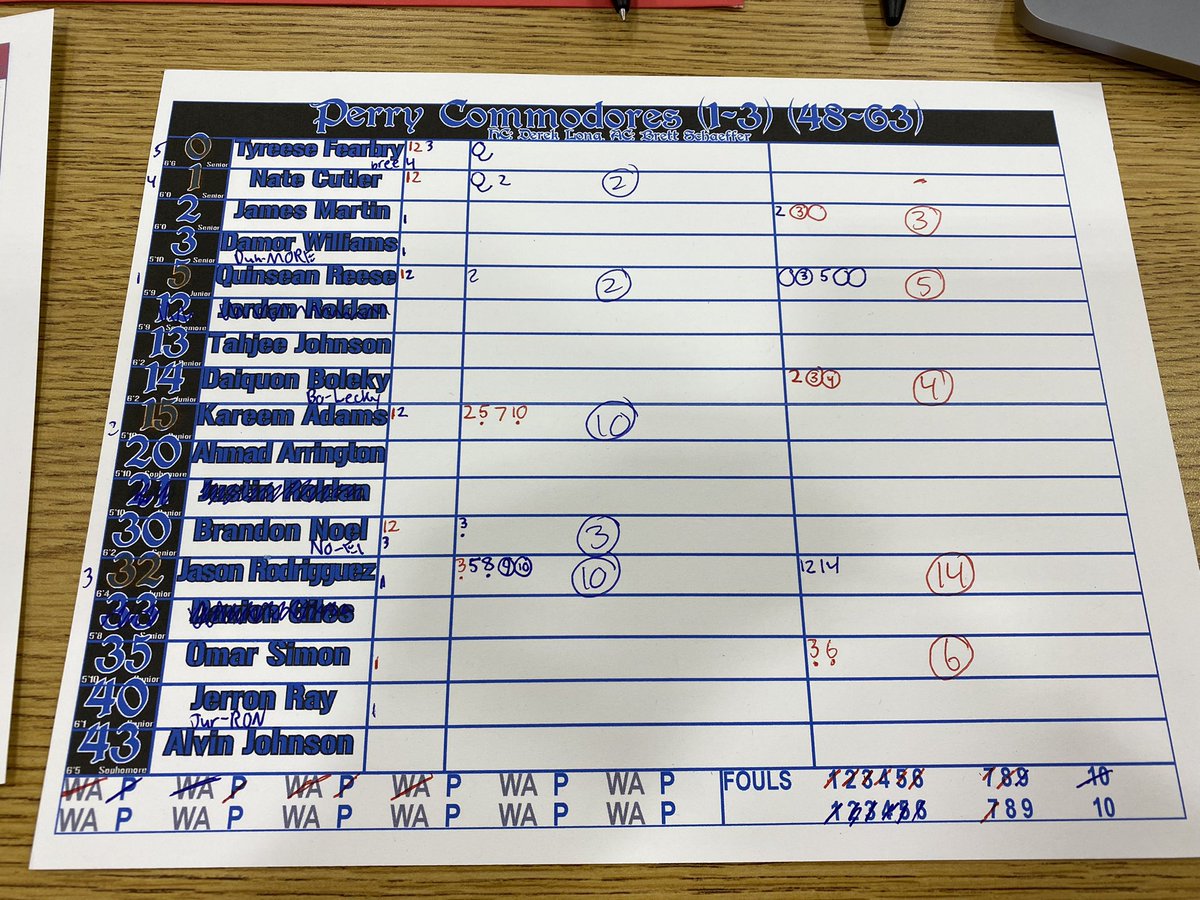 Perry Commodores (1-3) (48-63)
HC: Derek Long, AC: Brett Schaeffer
5 0 Tyreese Fearbry 12 3 Q
6'6 Senior bree 4
4 1 Nate Cutler 12 Q 2 2
6'0 Senior
2 James Martin 1 2 3 0 3
6'0 Senior
3 Damor Williams 1
5'10 Senior Duh-MORE
1 5 Quinsean Reese 12 2 2 0 3 5 0 0 5
5'9 Junior
12 Jordan Roldan
5'9 Sophomore
13 Tahjee Johnson
6'2 Senior
14 Daiquon Boleky 2 3 4 4
6'2 Junior Bo-Lecky
2 15 Kareem Adams 12 2 5 7 10 10
5'10 Junior
20 Ahmad Arrington
5'10 Sophomore
21
30 Brandon Noel 12 3 3 3
6'2 No-El
3 32 Jason Rodrigguez 1 3 5 8 9 10 10 12 14 14
6'4
33
5'8 Junior
35 Omar Simon 1 3 6 6
5'10 Junior
40 Jerron Ray 1
6'1 Junior Jur-RON
43 Alvin Johnson
6'5 Sophomore
WA P WA P WA P WA P WA P WA P FOULS 1 2 3 4 5 6 7 8 9 10
WA P WA P WA P WA P WA P WA P 1 2 3 4 5 6 7 8 9 10